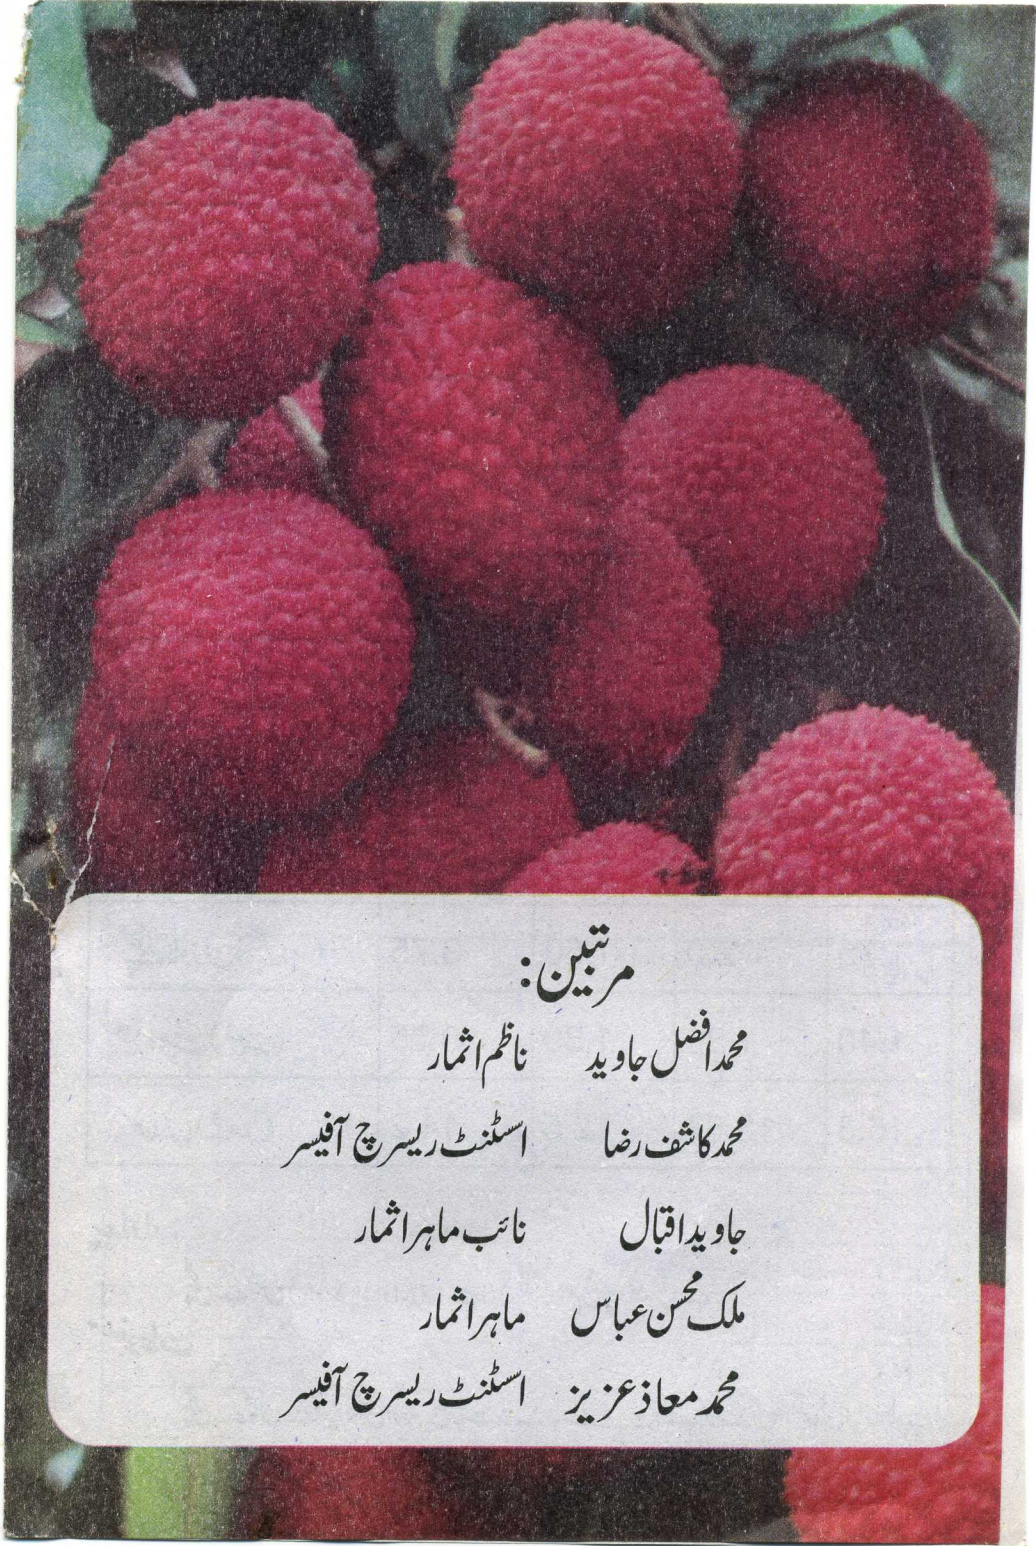 مرتبین:
محمد افضل جاوید ناظم اثمار
محمد کاشف رضا اسسٹنٹ ریسرچ آفیسر
جاوید اقبال نائب ماہر اثمار
ملک محسن عباس ماہر اثمار
محمد معاذ عزیز اسسٹنٹ ریسرچ آفیسر